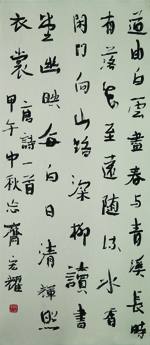 道由白雲盡春与青溪長時
有落花至遠随流水香
閑门向山路深柳讀書
堂幽映每白日清輝照
衣裳
詩一首
甲午中秋